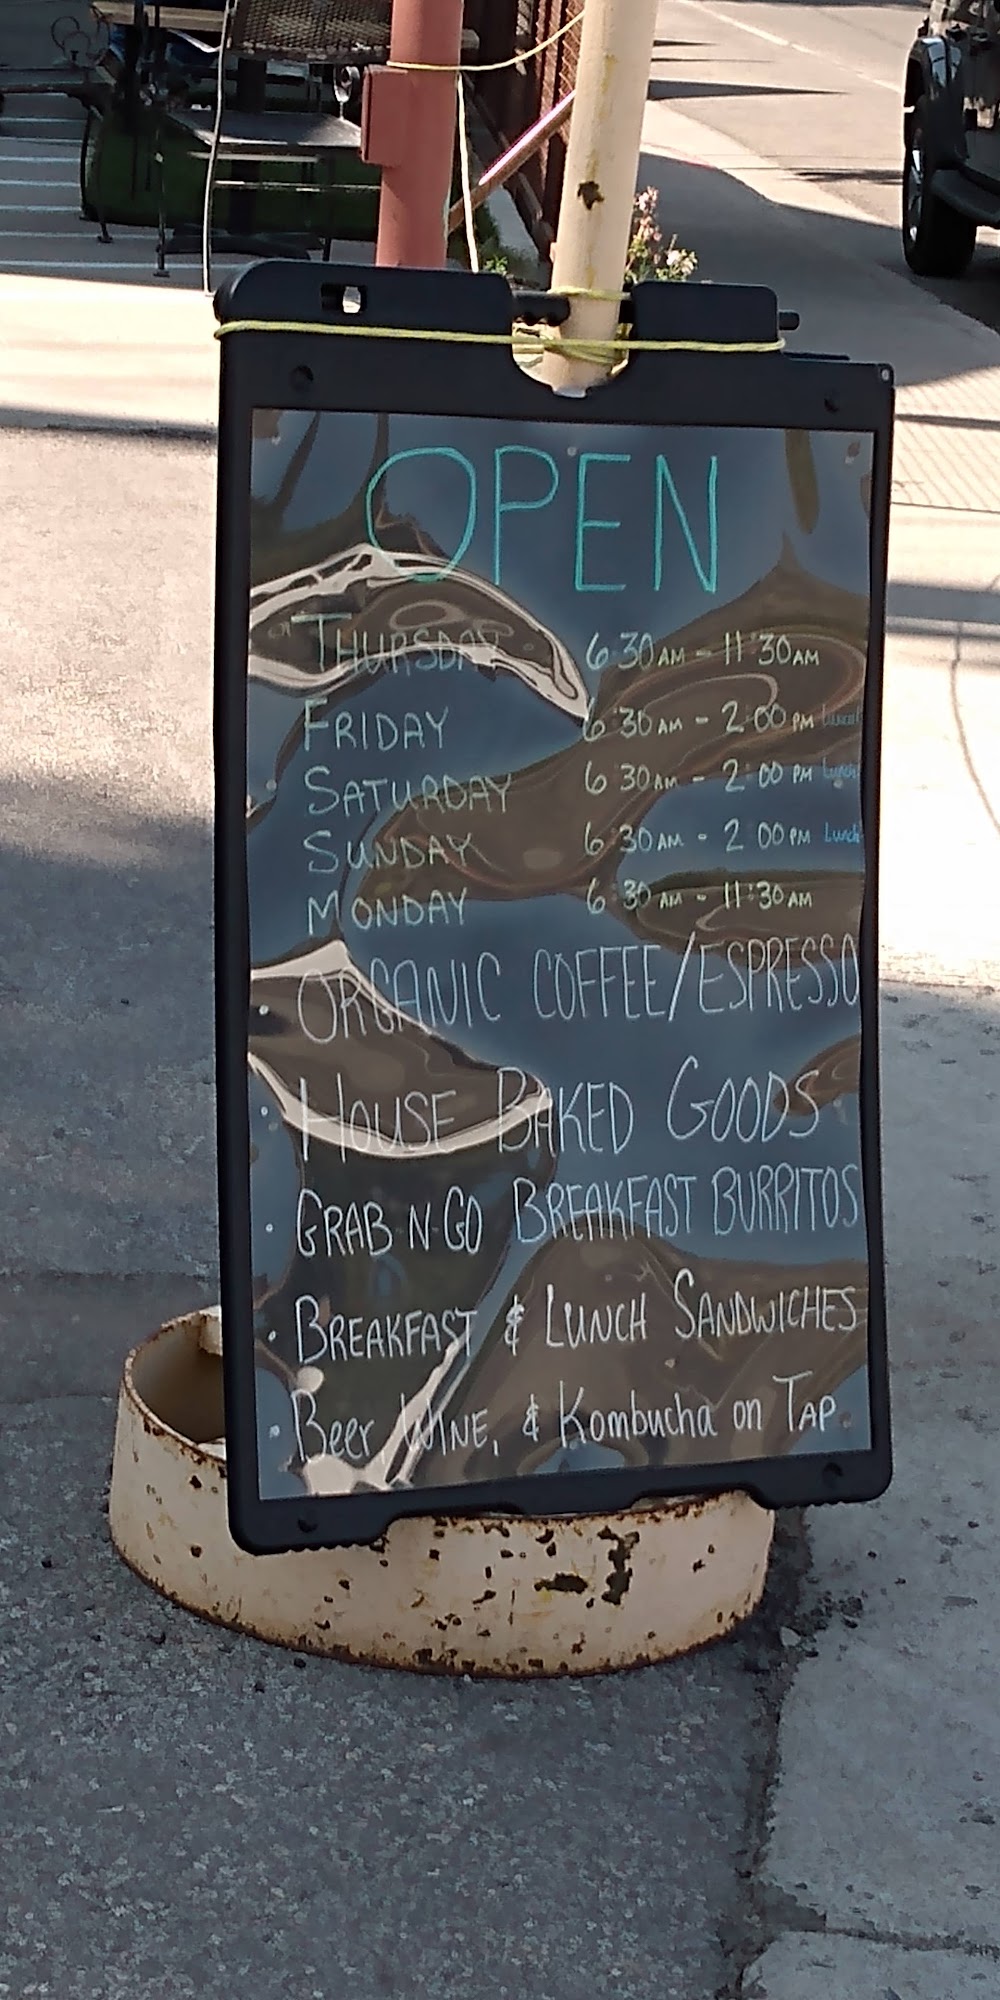 OPEN
THURSDAY 6:30AM - 11:30AM
FRIDAY 6:30AM - 2:00PM Lunch!
SATURDAY 6:30AM - 2:00PM Lunch!
SUNDAY 6:30AM - 2:00PM Lunch!
MONDAY 6:30AM - 11:30AM
• ORGANIC COFFEE/ESPRESSO
• HOUSE BAKED GOODS
• GRAB-N-GO BREAKFAST BURRITOS
• BREAKFAST & LUNCH SANDWICHES
• Beer, WINE, & Kombucha on TAP